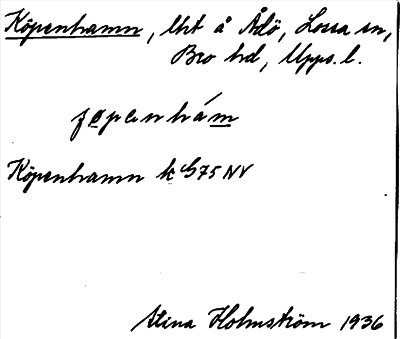 Köpenhamn, lht å Ådö, Lossa sn,
Bro hd, Upps. l.
Köpenhamn k G75 NV
Stina Holmström 1936